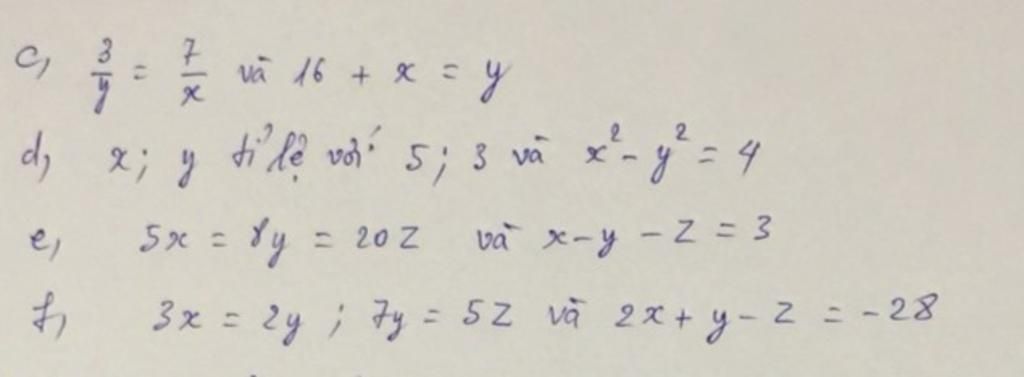 c, 3/y = 7/x và 16 + x = y
d, x; y tỉ lệ với 5; 3 và x² - y² = 4
e, 5x = 8y = 20z và x - y - z = 3
f, 3x = 2y ; 7y = 5z và 2x + y - z = -28